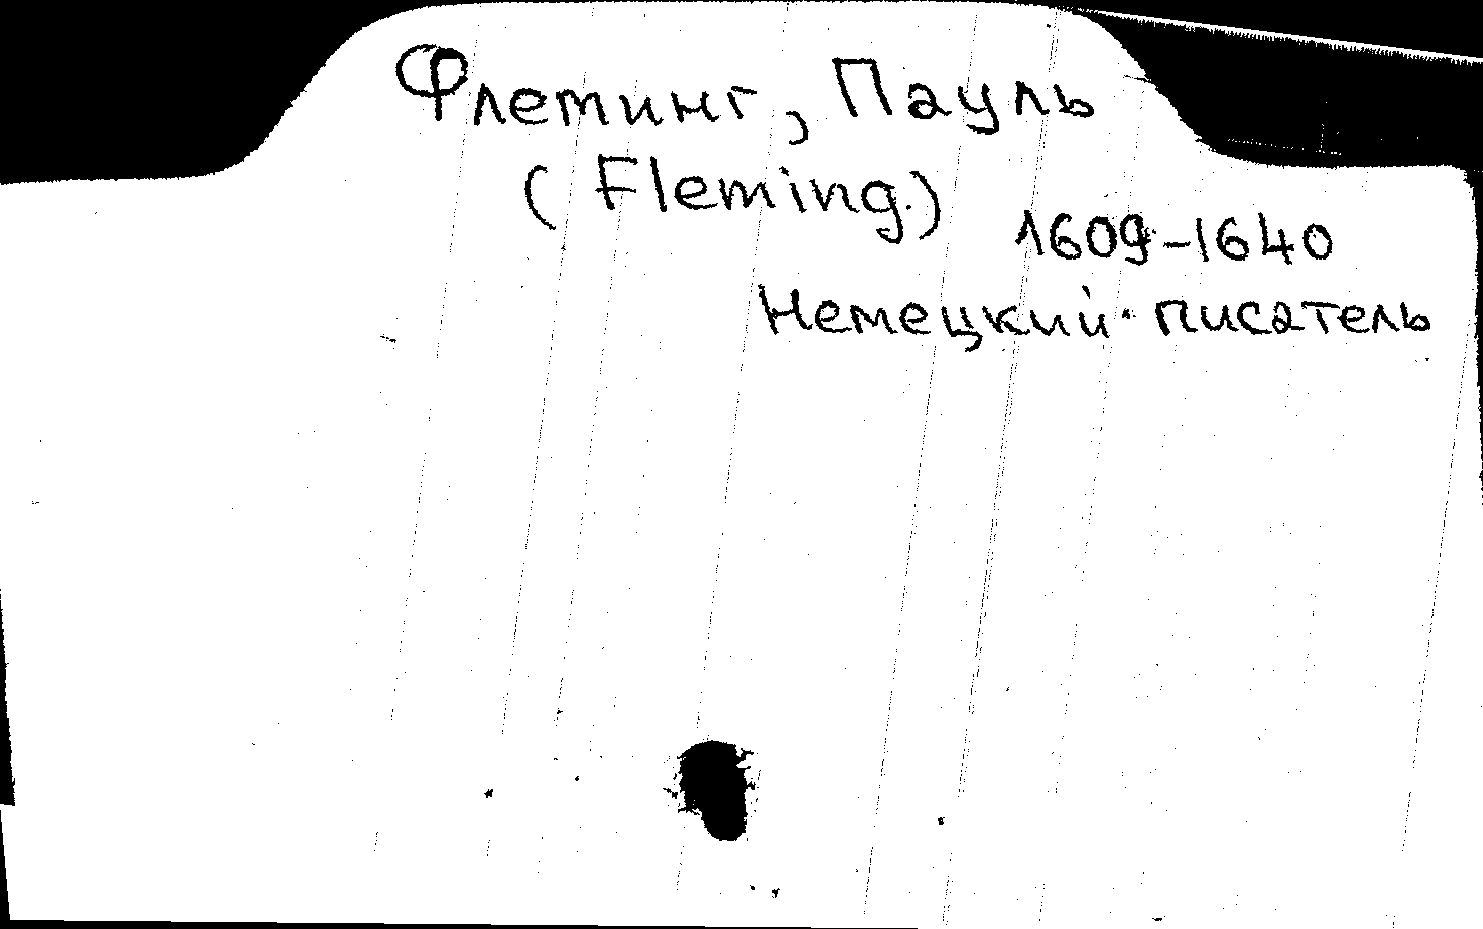 Флеминг, Пауль
(Fleming.)
1609-1640
Немецкий писатель